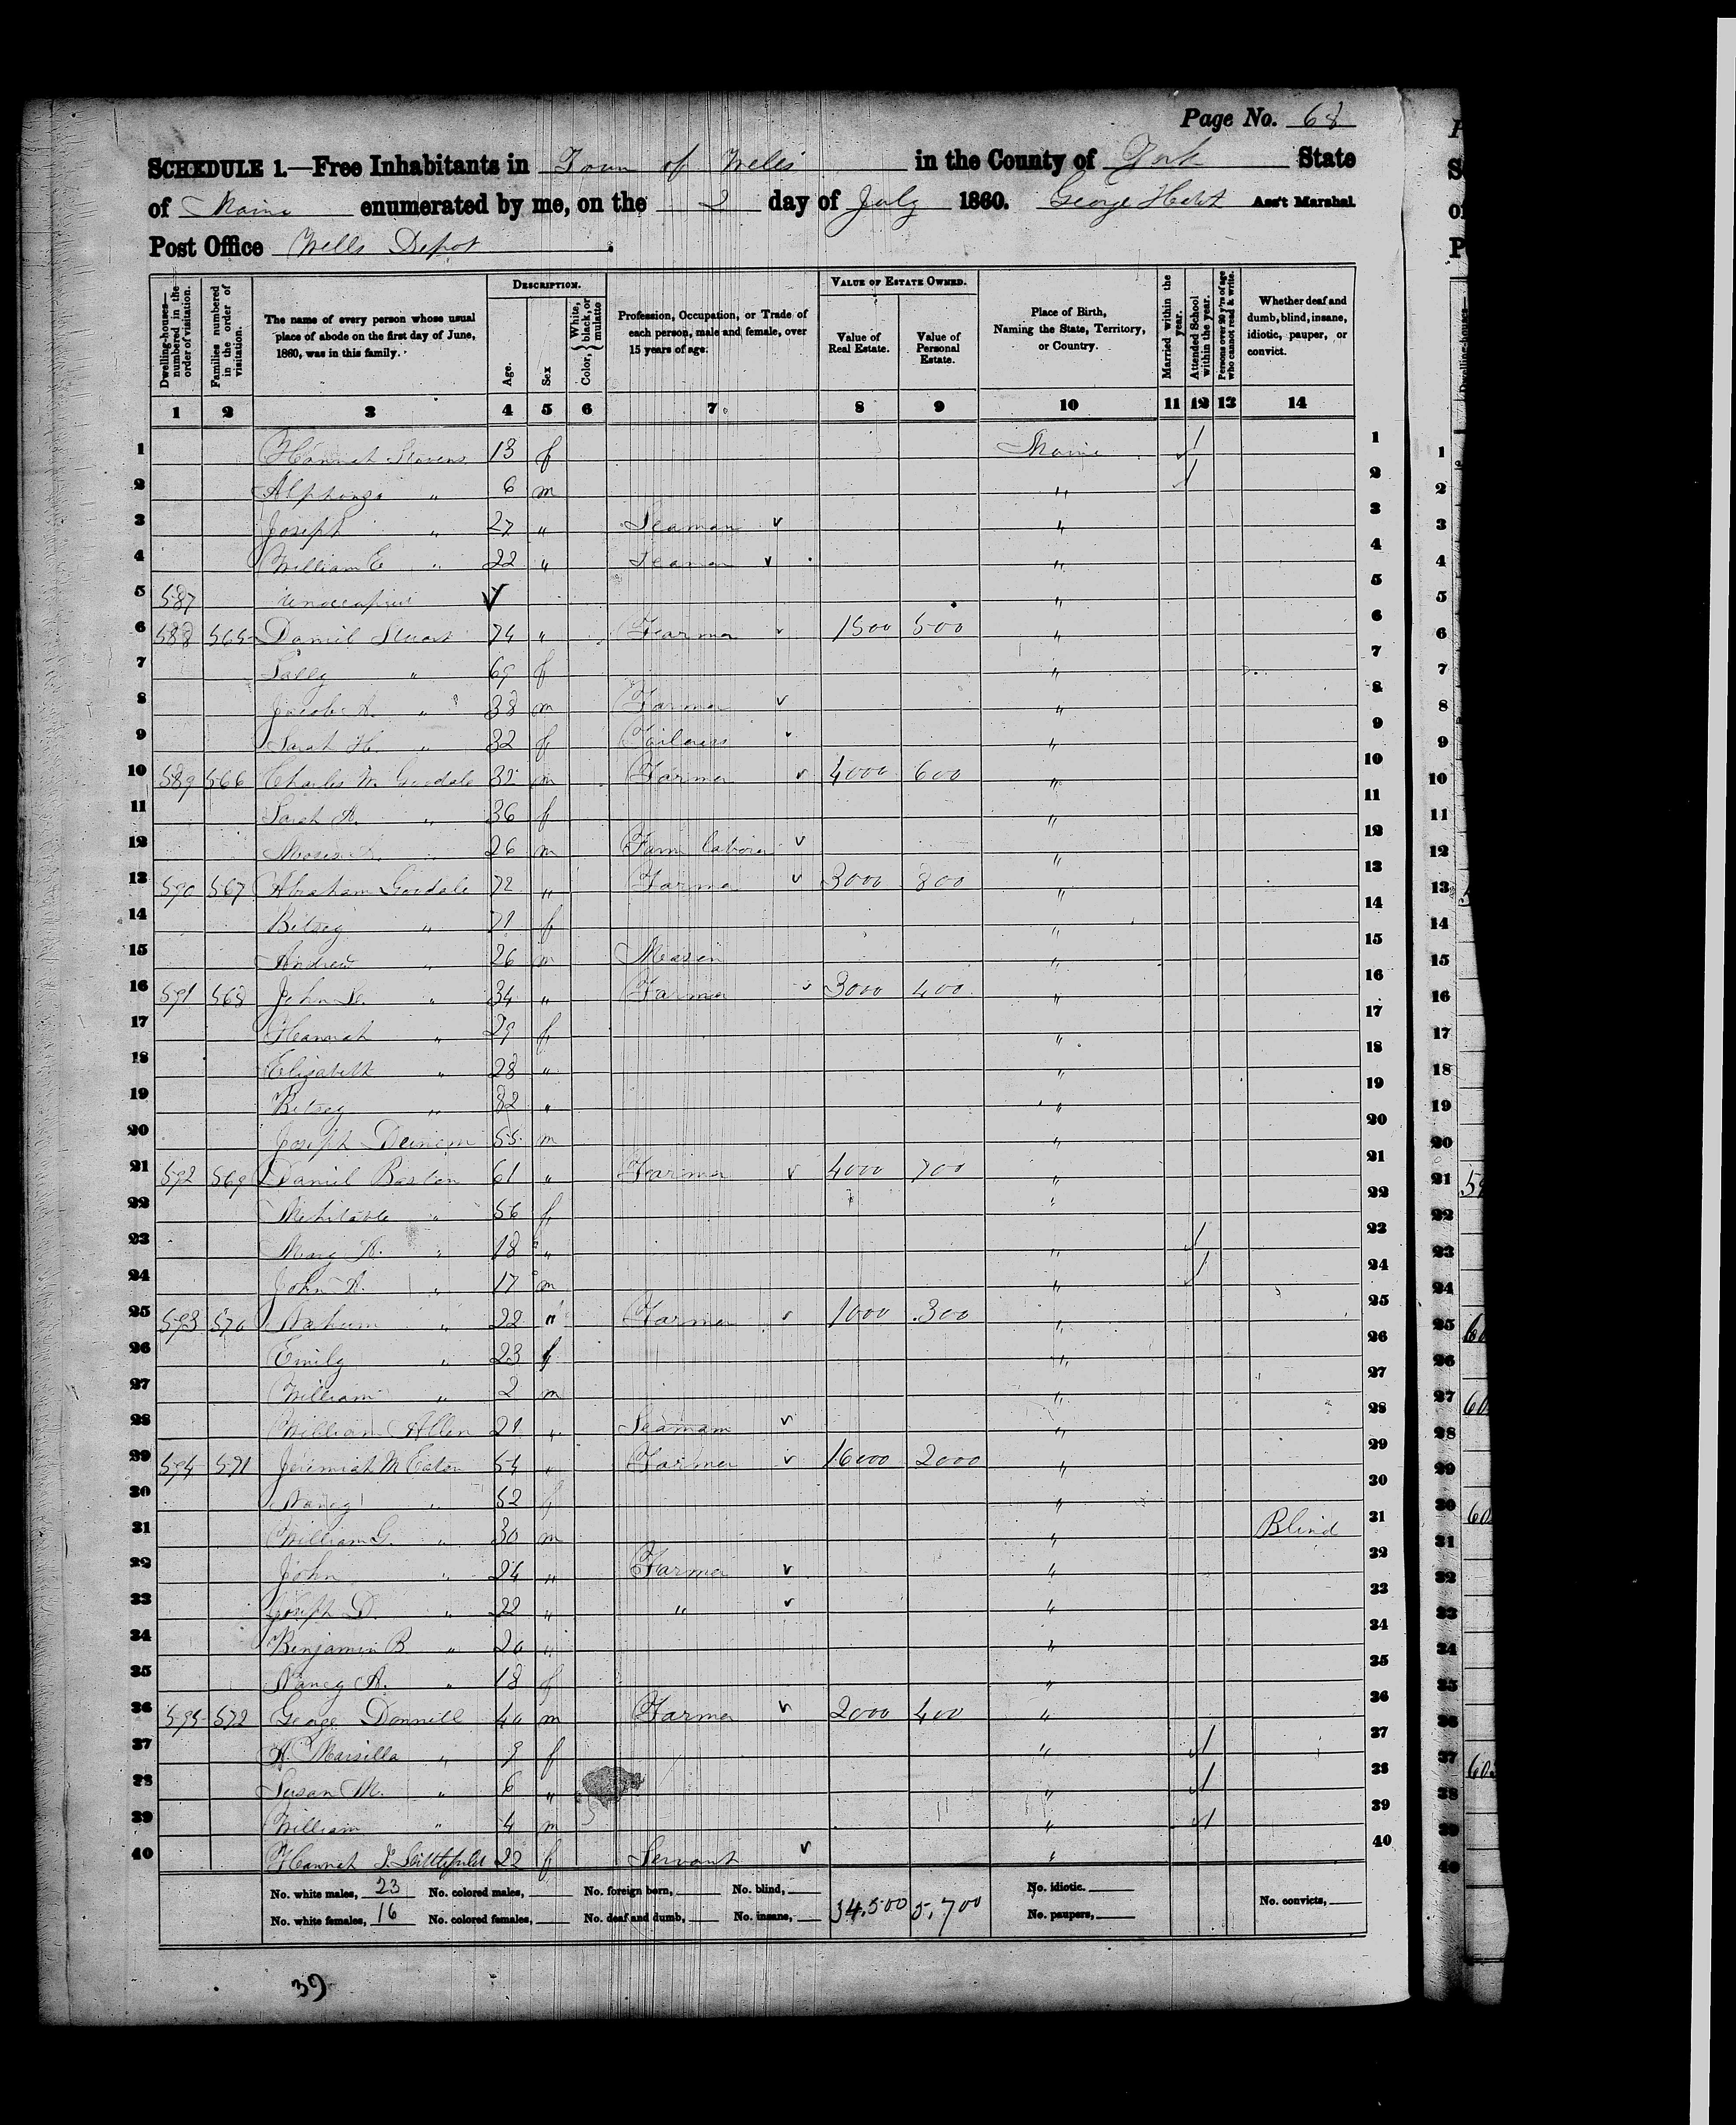 Page No. 68
SCHEDULE 1.—Free Inhabitants in Town of Wells in the County of York State
of Maine enumerated by me, on the 2 day of July 1860. George Ass't Marshal
Post Office Wells Depot
DESCRIPTION. VALUE OF ESTATE OWNED.
Dwelling-houses—numbered in the order of visitation. Families numbered in the order of visitation. The name of every person whose usual place of abode on the first day of June, 1860, was in this family. Age. Sex Color, { White, black, or mulatto Profession, Occupation, or Trade of each person, male and female, over 15 years of age. Value of Real Estate. Value of Personal Estate. Place of Birth, Naming the State, Territory, or Country. Married within the year. Attended School within the year. Persons over 20 y'rs of age who cannot read & write. Whether deaf and dumb, blind, insane, idiotic, pauper, or convict.
1 2 3 4 5 6 7 8 9 10 11 12 13 14
1 Hannah Stevens 13 f Maine / 1
2 Alphonzo " 6 m " / 2
3 Joseph " 27 " Seaman v " 3
4 William E " 22 " Seaman v " 4
5 587 Unoccupied " 5
6 588 565 Daniel Stuart 74 " Farmer v 1500 500 " 6
7 Sally " 69 f " 7
8 A. " 38 m Farmer v " 8
9 Sarah H. " 32 f Tailoress v " 9
10 589 566 Charles M. Goodale 32 m Farmer v 4000 600 " 10
11 Sarah A. " 36 f " 11
12 Moses " 26 m Farm labor v " 12
13 590 567 Abraham Goodale 72 " Farmer v 3000 800 " 13
14 Betsey " 71 f " 14
15 Andrew " 26 m Mason " 15
16 591 568 John " 34 " Farmer v 3000 400 " 16
17 Hannah " 29 f " 17
18 Elizabeth " 28 " " 18
19 Betsey " 82 " " 19
20 Joseph 55 m " 20
21 592 569 Daniel Baston 61 " Farmer v 4000 700 " 21
22 Mehitable " 56 f " 22
23 Mary A. " 18 " " / 23
24 John A. " 17 m " / 24
25 593 570 Nahum " 22 " Farmer v 1000 300 " 25
26 Emily " 23 f " 26
27 William " 2 m " 27
28 William Allen 21 " Seaman v " 28
29 594 571 Jeremiah M Eaton 54 " Farmer v 16000 2000 " 29
30 Nancy " 52 f " 30
31 William G. " 30 m " Blind 31
32 John " 24 " Farmer v " 32
33 Joseph D. " 22 " " v " 33
34 Benjamin B " 20 " " 34
35 Nancy A. " 18 f " 35
36 595 572 George Donnell 40 m Farmer v 2000 400 " 36
37 A. Marsilla " 9 f " / 37
38 Susan M. " 6 " " / 38
39 William " 4 m " / 39
40 Hannah J. Littlefield 22 f Servant v " 40
No. white males, 23 No. colored males, No. foreign born, No. blind, 34,500 5,700 No. idiotic. No. convicts,
No. white females, 16 No. colored females, No. deaf and dumb, No. insane, No. paupers,
39